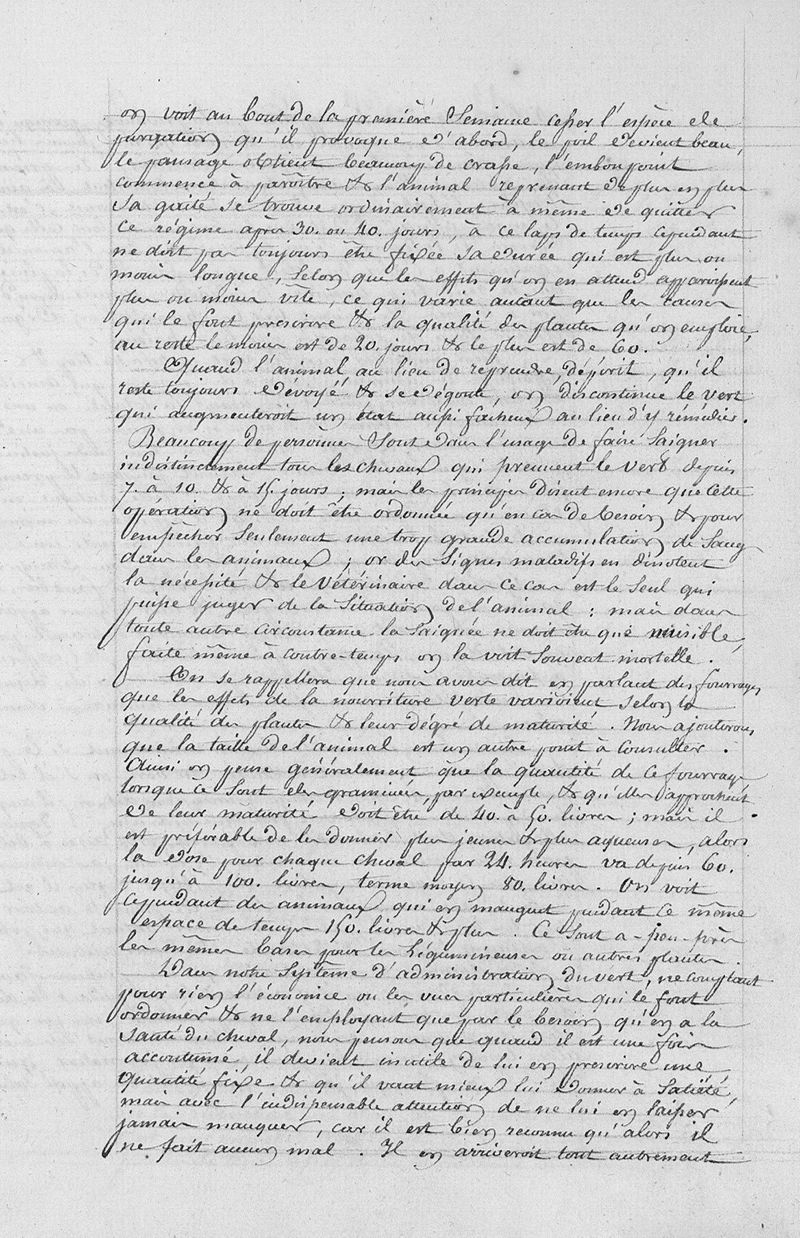 on voit au bout de la première Semaine cesser l'espèce de
purgation qu'il provoque d'abord, le poil devient beau,
le pansage obtient beaucoup de crasse, l'embonpoint
commence à paroître & l'animal reprenant de plus en plus
sa gaité se trouve ordinairement à même de quitter
ce régime après 30. ou 40. jours, à ce laps de temps cependant
ne doit pas toujours être fixée sa durée qui est plus ou
moins longue, selon que les effets qu'on en attend apparoissent
plus ou moins vite, ce qui varie autant que les causes
qui le font prescrire & la qualité des plantes qu'on emploie,
au reste le moins est de 20. jours & le plus est de 60.
Quand l'animal au lieu de reprendre, dépérit, qu'il
reste toujours dévoyé & se dégoute, on discontinue le vert
qui augmenteroit un état aussi facheux au lieu d'y rémédier.
Beaucoup de personnes sont dans l'usage de faire Saigner
indistinctement tous les chevaux qui prennent le vert depuis
7. à 10. & à 15. jours ; mais les principes disent encore que cette
opération ne doit être ordonnée qu'en cas de besoin & pour
empêcher seulement une trop grande accumulation de Sang
dans les animaux ; or des signes maladifs en dénotent
la nécessité & le Vétérinaire dans ce cas est le seul qui
puisse juger de la Situation de l'animal : mais dans
toute autre circonstance la Saignée ne doit être que nuisible,
faite même à contre-temps on la voit souvent mortelle.
On se rappellera que nous avons dit en parlant des fourrages
que les effets de la nourriture verte varioient selon la
qualité des plantes & leur dégré de maturité. Nous ajouterons
que la taille de l'animal est un autre point à consulter.
Ainsi on pense généralement que la quantité de ce fourrage
lorsque ce sont des graminées, par exemple, & qu'elles approchent
de leur maturité doit être de 40. à 50. livres ; mais il
est préférable de les donner plus jeunes & plus aqueuses, alors
la dose pour chaque cheval par 24. heures va depuis 60.
jusqu'à 100. livres, terme moyen 80. livres. On voit
cependant des animaux qui en mangent pendant ce même
espace de temps 150. livres & plus. Ce sont a-peu-près
les mêmes bases pour les Légumineuses ou autres plantes.
Dans notre Systême d'administration du vert, ne comptant
pour rien l'économie ou les vues particulières qui le font
ordonner & ne l'employant que par le besoin qu'en a la
santé du cheval, nous pensons que quand il est une fois
accoutumé il devient inutile de lui en prescrire une
quantité fixe & qu'il vaut mieux lui donner à Satiété,
mais avec l'indispensable attention de ne lui en laisser
jamais manquer, car il est bien reconnu qu'alors il
ne fait aucun mal. Il en arriveroit tout autrement